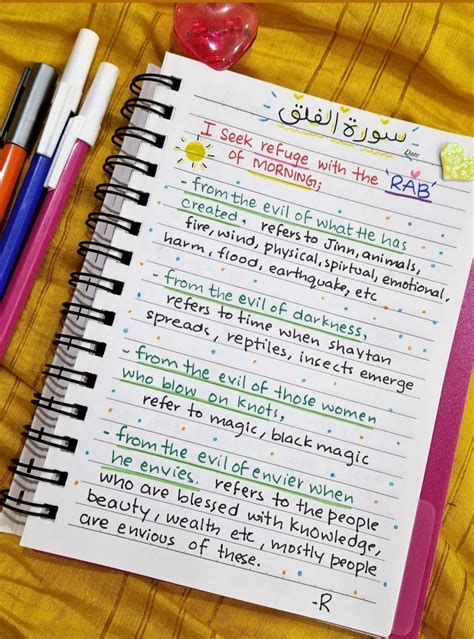 سورة الفلق
Date
I seek refuge with the RAB
of MORNING;
- from the evil of what He has
created, refers to Jinn, animals,
fire, wind, physical, spirtual, emotional,
harm, flood, earthquake, etc
- from the evil of darkness,
refers to time when shaytan
spreads, reptiles, insects emerge
- from the evil of those women
who blow on knots,
refer to magic, black magic
- from the evil of envier when
he envies. refers to the people
who are blessed with knowledge,
beauty, wealth etc, mostly people
are envious of these.
-R